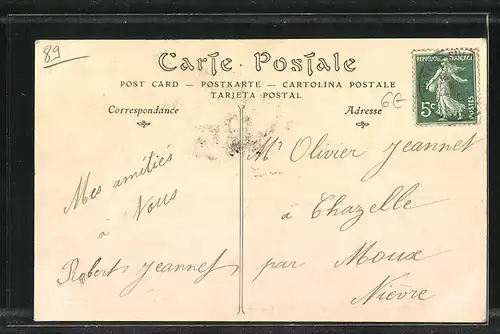 89
Carte Postale
POST CARD — POSTKARTE — CARTOLINA POSTALE
TARJETA POSTAL
Correspondance
Adresse
REPUBLIQUE FRANÇAISE
5c
POSTES
6€
Mes amitiés
à
Vous
Robert Jeannet
Mr Olivier Jeannet
à Chazelle
par Moux
Nièvre